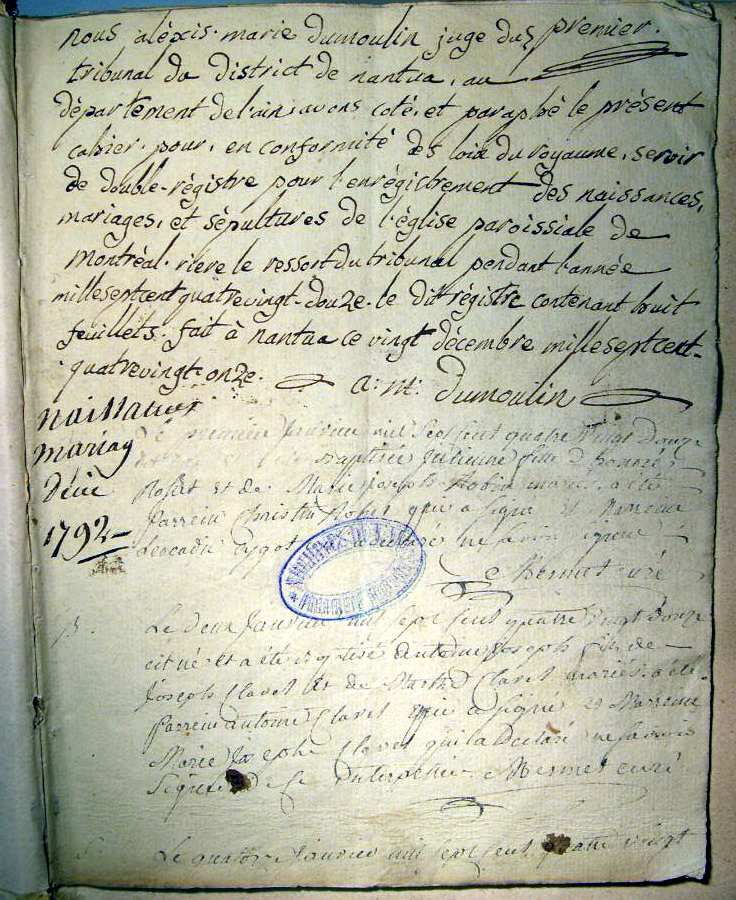 nous aléxis-marie dumoulin juge du premier.
tribunal du district de nantua, au
département de l'ain, avons coté, et paraphé le présent
cahier, pour, en conformité des loix du royaume, servir
de double-régistre pour l'enrégistrement des naissances,
mariages, et sépultures de l'église paroissiale de
montréal. riere le ressort du tribunal pendant l'année
millesept cent quatrevingt-douze. le dit régistre contenant huit
feuillets. fait à nantua ce vingt décembre millesept cent-
quatrevingt-onze. a: m: dumoulin
naissances
mariag
décè
1792
premier Janvier mil sept cent quatre vingt douze
baptisée fille
et de Marie Joseph mariés a été
Parrein qui a signé et Marreine
Leocadie ne savoir signer
Bermet curé
Le deux Janvier mil sept cent quatre vingt douze
est né et a été antoine Joseph fils de
Joseph Clavet et de Clavet mariés a été
Parrein antoine Clavet qui a signé et Marreine
Marie Josephe Clavet qui a Declaré ne savoir
Signer de ce Interpellée Bermet curé
Le quatorze Janvier mil sept cent quatre vingt